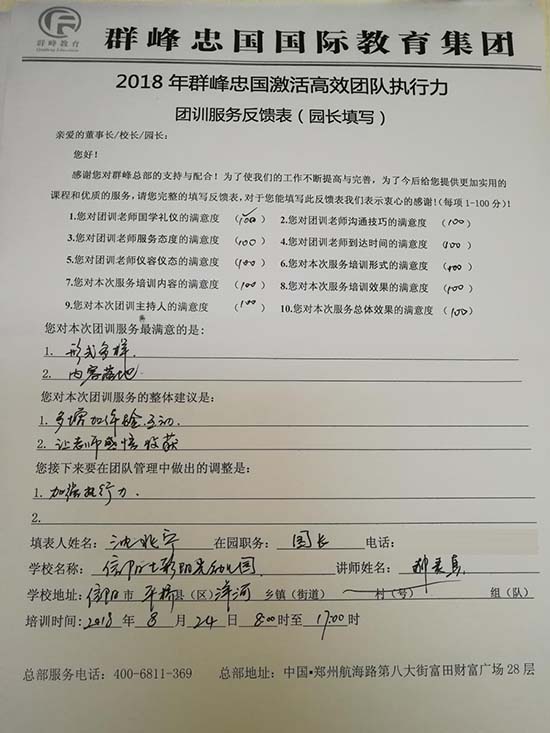 群峰教育
群峰忠国国际教育集团
2018年群峰忠国激活高效团队执行力
团训服务反馈表（园长填写）
亲爱的董事长/校长/园长：
您好！
感谢您对群峰总部的支持与配合！为了使我们的工作不断提高与完善，为了今后给您提供更加实用的
课程和优质的服务，请您完整的填写反馈表，对于您能填写此反馈表我们表示衷心的感谢！(每项1-100分)！
1.您对团训老师国学礼仪的满意度 （100） 2.您对团训老师沟通技巧的满意度 （100）
3.您对团训老师服务态度的满意度 （100） 4.您对团训老师到达时间的满意度 （100）
5.您对团训老师仪容仪态的满意度 （100） 6.您对本次服务培训形式的满意度 （100）
7.您对本次服务培训内容的满意度 （100） 8.您对本次服务培训效果的满意度 （100）
9.您对本次团训主持人的满意度 （100） 10.您对本次服务总体效果的满意度（100）
您对本次团训服务最满意的是:
1. 形式多样.
2. 内容落地
您对本次团训服务的整体建议是:
1. 多增加体验.互动.
2. 让老师感悟收获
您接下来要在团队管理中做出的调整是:
1. 加强执行力.
2.
填表人姓名: 沈兆宁 在园职务: 园长 电话:
学校名称: 信阳七彩阳光幼儿园 讲师姓名:
学校地址: 信阳市 平桥县（区）洋河 乡镇（街道） 村（号） 组（队）
培训时间: 2018 年 8 月 24 日 8:00时至 17:00时
总部服务电话: 400-6811-369 总部地址: 中国·郑州航海路第八大街富田财富广场28层